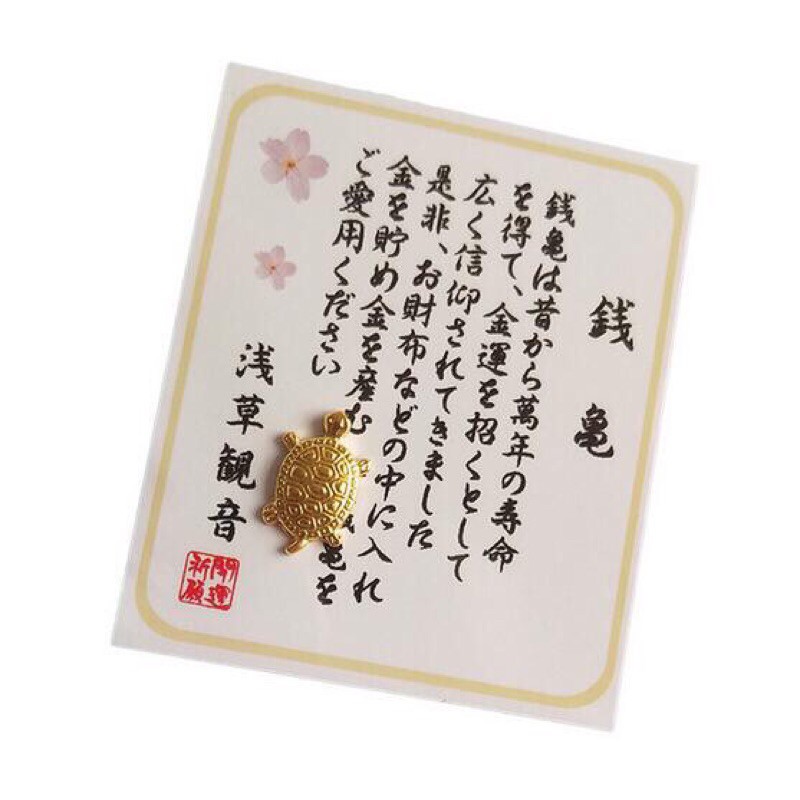 銭亀
銭亀は昔から萬年の寿命
を得て、金運を招くとして
広く信仰されてきました
是非、お財布などの中に入れ
金を貯め金を産む 亀を
ご愛用ください
浅草観音
開運
祈願